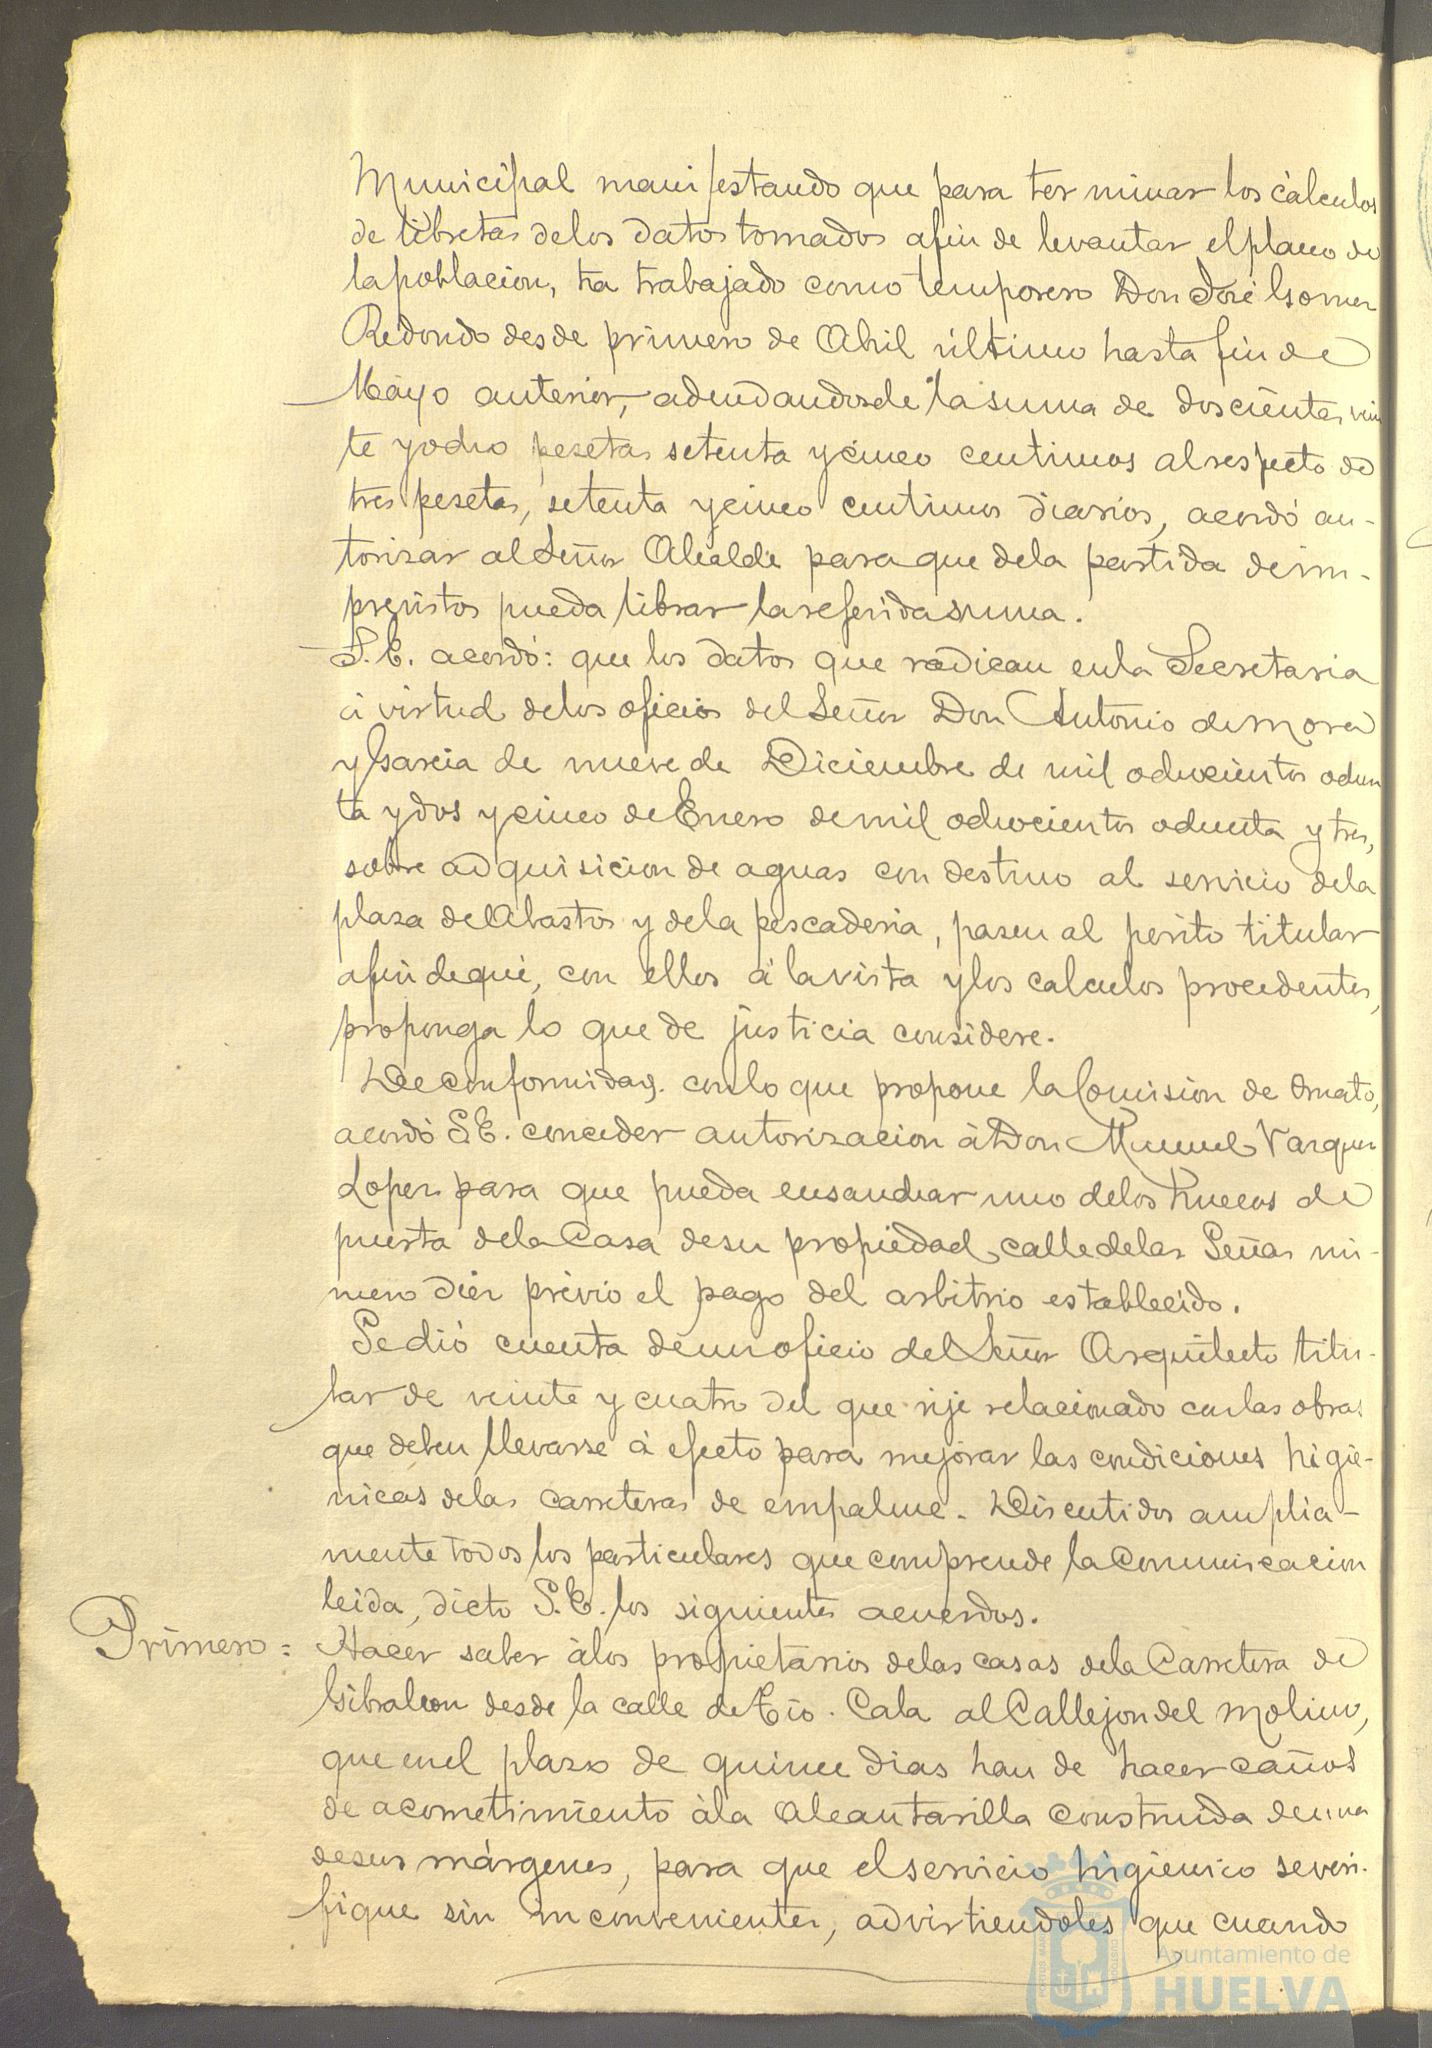 Municipal manifestando que para terminar los cálculos
de libretas de los datos tomados afin de levantar el plano de
la poblacion, ha trabajado como temporero Don José Gomez
Redondo desde primero de Abril último hasta fin de
Mayo anterior, adeudandosele la suma de doscientas vein
te y ocho pesetas setenta y cinco centimos al respecto de
tres pesetas, setenta y cinco centimos diarios, acordó au-
torizar al Señor Alcalde para que de la partida de im-
previstos pueda librar la referida suma.
S.E. acordó: que los datos que radican en la Secretaria
á virtud de los oficios del Señor Don Antonio de Mora
y Garcia de nueve de Diciembre de mil ochocientos ochen
ta y dos y cinco de Enero de mil ochocientos ochenta y tres,
sobre adquisicion de aguas con destino al servicio de la
plaza de Abastos y de la pescaderia, pasen al perito titular
afin de que, con ellos á la vista y los calculos procedentes,
proponga lo que de justicia considere.
De conformidad con lo que propone la Comision de Ornato,
acordó S.E. conceder autorizacion á Don Manuel Vazquez
Lopez para que pueda ensanchar uno de los huecos de
puerta de la Casa de su propiedad calle de las Señas nú-
mero diez previo el pago del arbitrio establecido.
Se dió cuenta de un oficio del Señor Arquitecto titu-
lar de veinte y cuatro del que rije relacionado con las obras
que deben llevarse á efecto para mejorar las condiciones higié-
nicas de las carreteras de empalme. Discutidos amplia-
mente todos los particulares que comprende la comunicacion
leida, dictó S.E. los siguientes acuerdos.
Primero = Hacer saber á los propietarios de las casas de la Carretera de
Gibraleon desde la calle de Tio Cala al Callejon del Molino,
que en el plazo de quince dias han de hacer caños
de acometimiento á la alcantarilla construida en una
de sus márgenes, para que el servicio higienico se veri-
fique sin inconvenientes, advirtiendoles que cuando
Ayuntamiento de
HUELVA